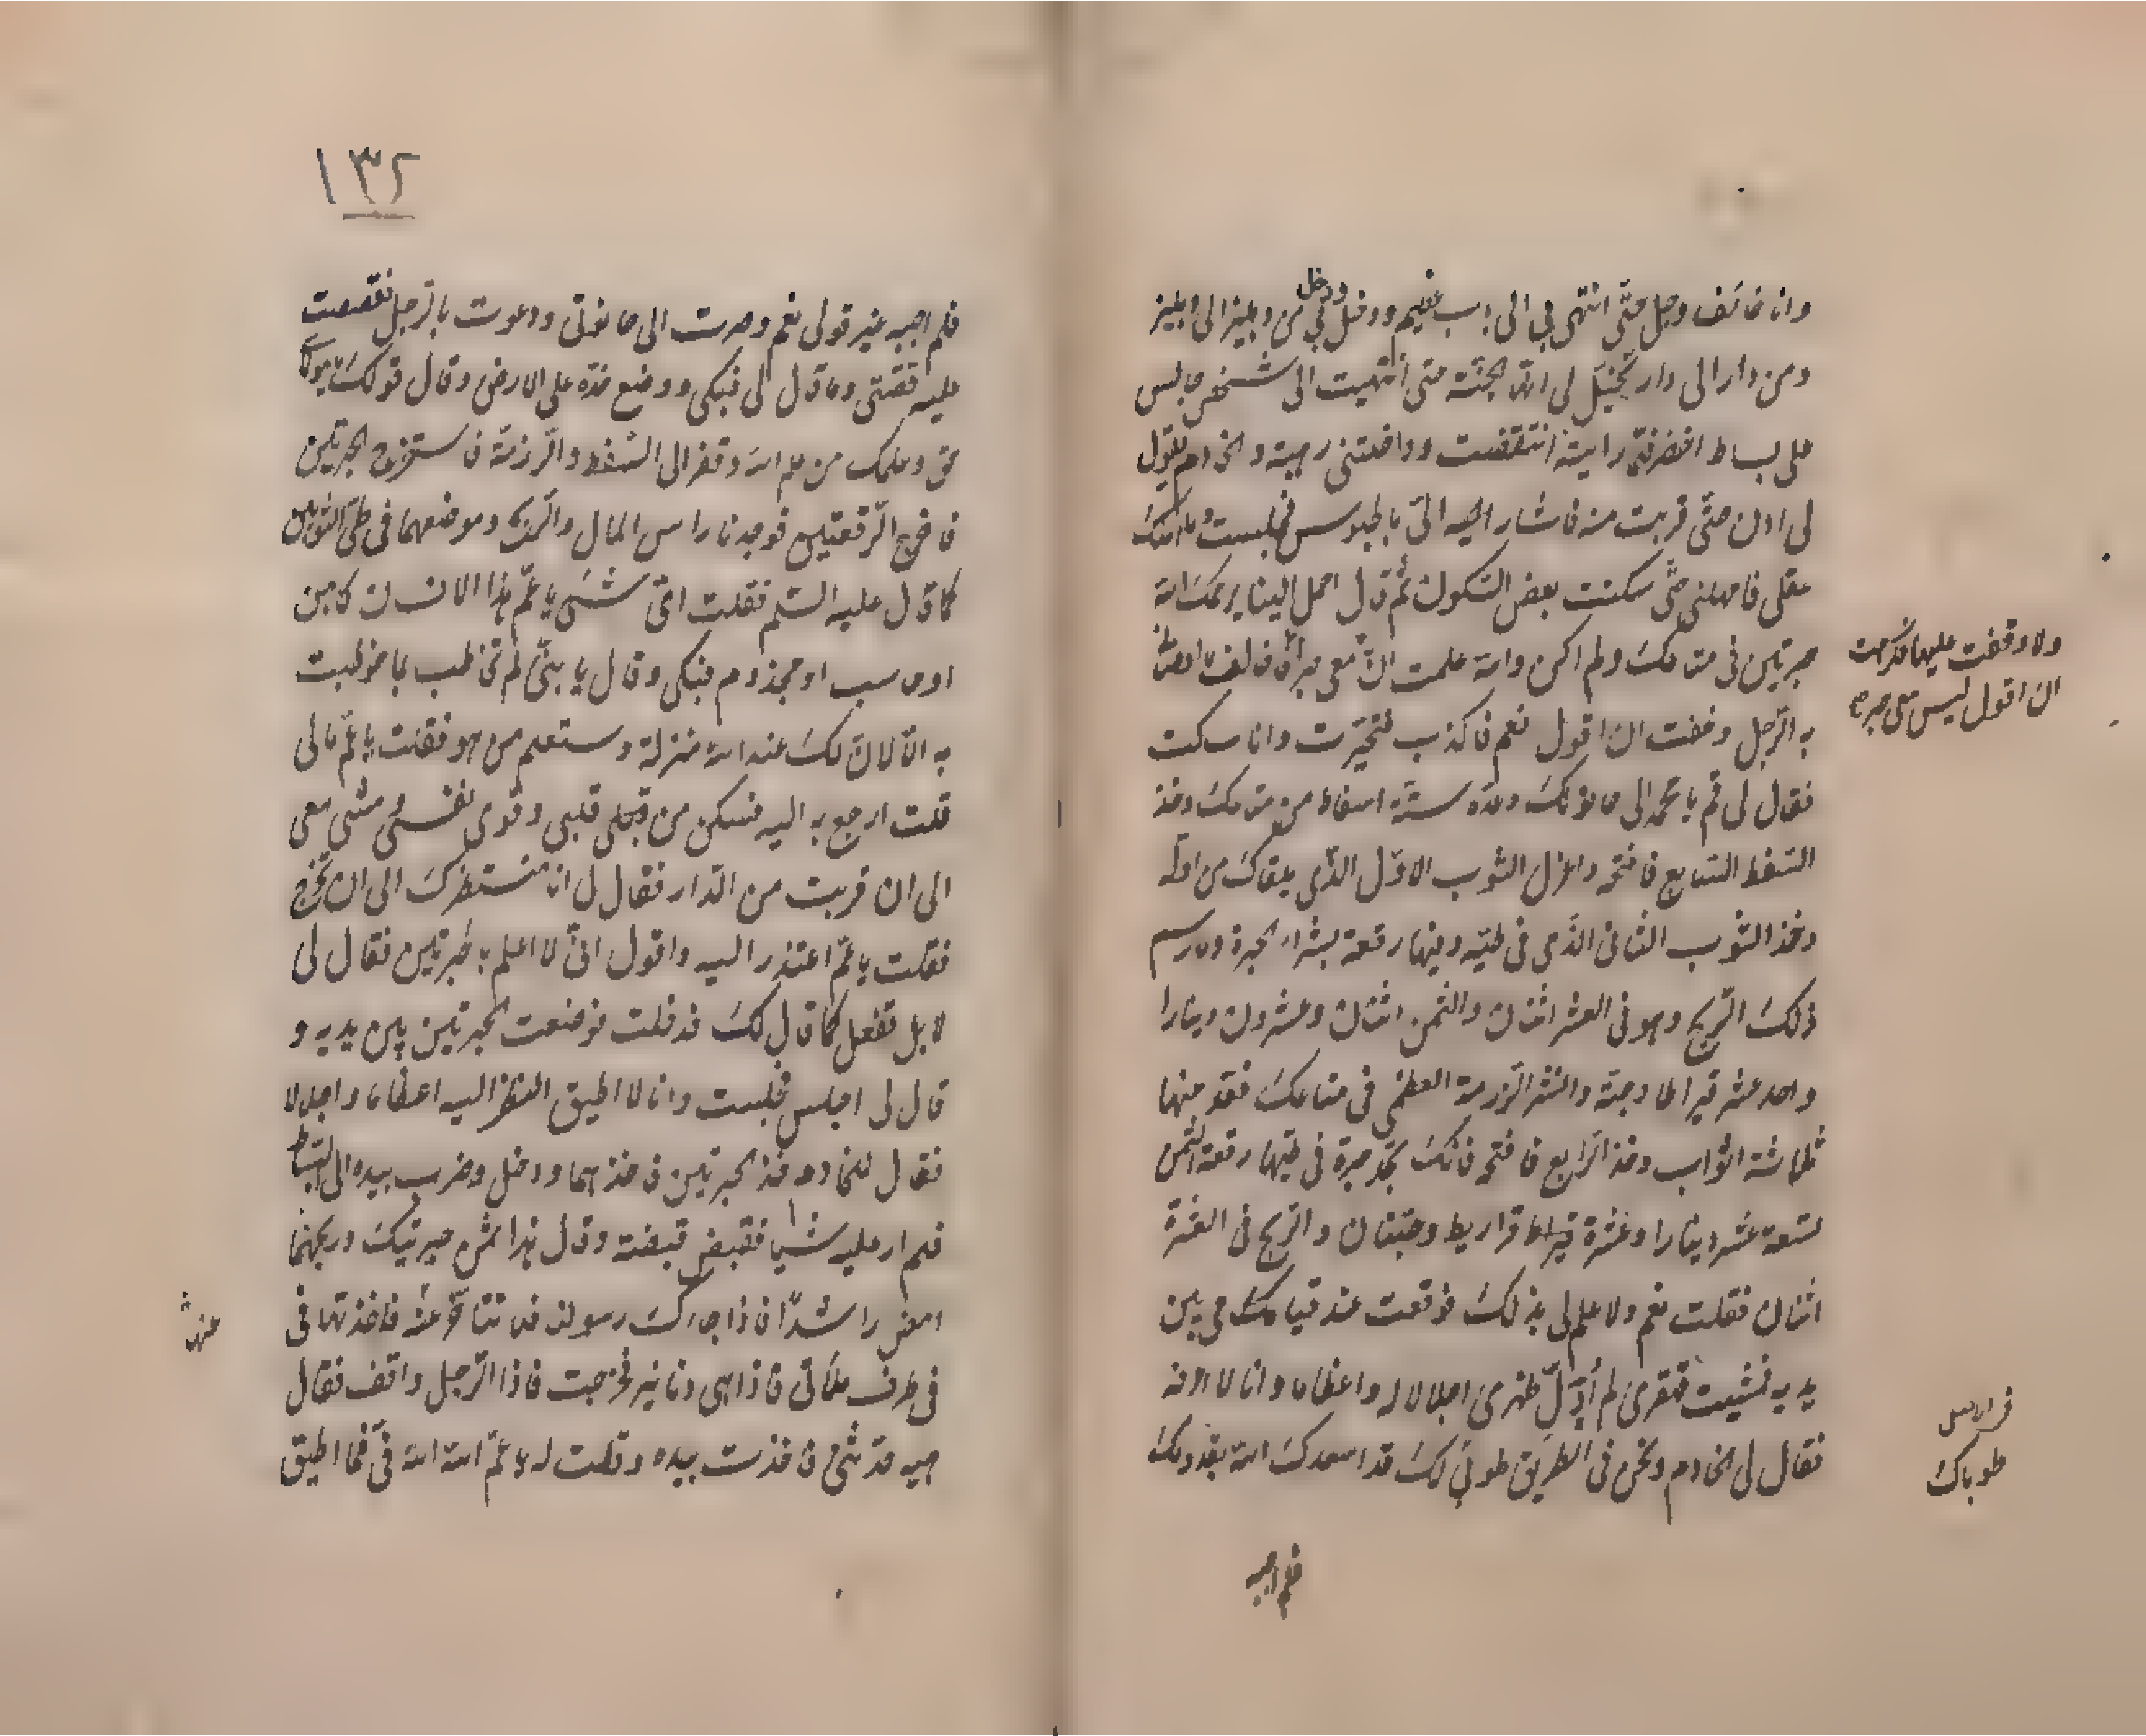 وانا خائف وجل حتى انتهى بي الى باب عظيم ودخل بي من دهليز الى دهليز
ودخل
ومن دار الى دار تخيل لى انها الجنة حتى انتهيت الى شخص جالس
على بساط اخضر فلما رايته انتفضت وداخلتنى رهبة والخادم يقول
لى ادن حتى قربت منه فاشار اليه الى بالجلوس فجلست وما املك
عقلى فامهلنى حتى سكنت بعض السكون ثم قال احمل الينا يرحمك الله
حبرتين فى متاعك ولم اكن والله علمت ان معى حبرا
به الرجل وخفت ان اقول نعم فاكذب فتحيرت وانا ساكت
فقال لى قم يا محمد الى حانوتك وعد ستة اسفاط من متاعك وخذ
السفط السابع فافتحه واعزل الثوب الاول الذى يلقاك من اوله
وخذ الثوب الثانى الذى فى طيه وفيها رقعة بشراء الحبرة وما رسم
ذلك الربح وهو فى العشر اثنان والثمن اثنان وعشرون دينارا
واحد عشر قيراطا وحبة وانشر الرزمة العظمى فى متاعك فعد منها
ثلاثة اثواب وخذ الرابع فافتحه فانك تجد حبرة فى طيها رقعة الثمن
تسعة عشر دينارا وعشرة قيراط قراريط وحبتان والربح فى العشرة
اثنان فقلت نعم ولا علم لى بذلك فوقعت عند قيامك من بين
يديه فمشيت قهقرى لم أول ظهرى اجلالا له واعظاما وانا لا اعرفه
فقال لى الخادم ونحن فى الطريق طوبى لك قد اسعدك الله بقدومك
ولا وقفت عليها فكرهت
ان اقول ليس معى حبرة
طوباك
فلم اجبه
١٣٢
فلم اجبه غير قولى نعم وصرت الى حانوتى ودعوت بالرجل فقصصت
عليه قصتى وما قال لى فبكى ووضع خده على الارض وقال قولك يا مولاى
حق وعلمك من علم الله وقفز الى السفط والرزمة فاستخرج الحبرتين
فاخرج الرقعتين فوجدنا راس المال والربح وموضعهما فى طى الثوبين
كما قال عليه السلم فقلت اى شئ يا عم هذا الانسان كاهن
او حاسب او مخدوم فبكى وقال يا بنى لم تخاطب بما خوطبت
به الا لان لك عند الله منزلة وستعلم من هو فقلت يا عم مالى
قلت ارجع به اليه فسكن من قبلى قلبى وقوى نفسى ومشى معى
الى ان قربت من الدار فقال لى انا منتظرك الى ان تخرج
فقلت يا عم اعتذر اليه واقول انى لا اعلم بالحبرتين فقال لى
لا بل تفعل كما قال لك فدخلت فوضعت الحبرتين بين يديه و
قال لى اجلس فجلست وانا لا اطيق النظر اليه اعظاما واجلالا
فقال للخادم خذ الحبرتين فاخذهما ودخل وضرب بيده الى البساط
فلم ار عليه شيا فقبض قبضة وقال هذا ثمن حبرتيك وربحهما
امض راشدا فاذا جاءك رسولنا فلا تتاخر عنه فاخذتها فى
فى طرف ملاءتى فاذا هى دنانير فخرجت فاذا الرجل واقف فقال
هيه حدثنى فاخذت بيده وقلت له يا عم الله الله فى فما اطيق
عنها